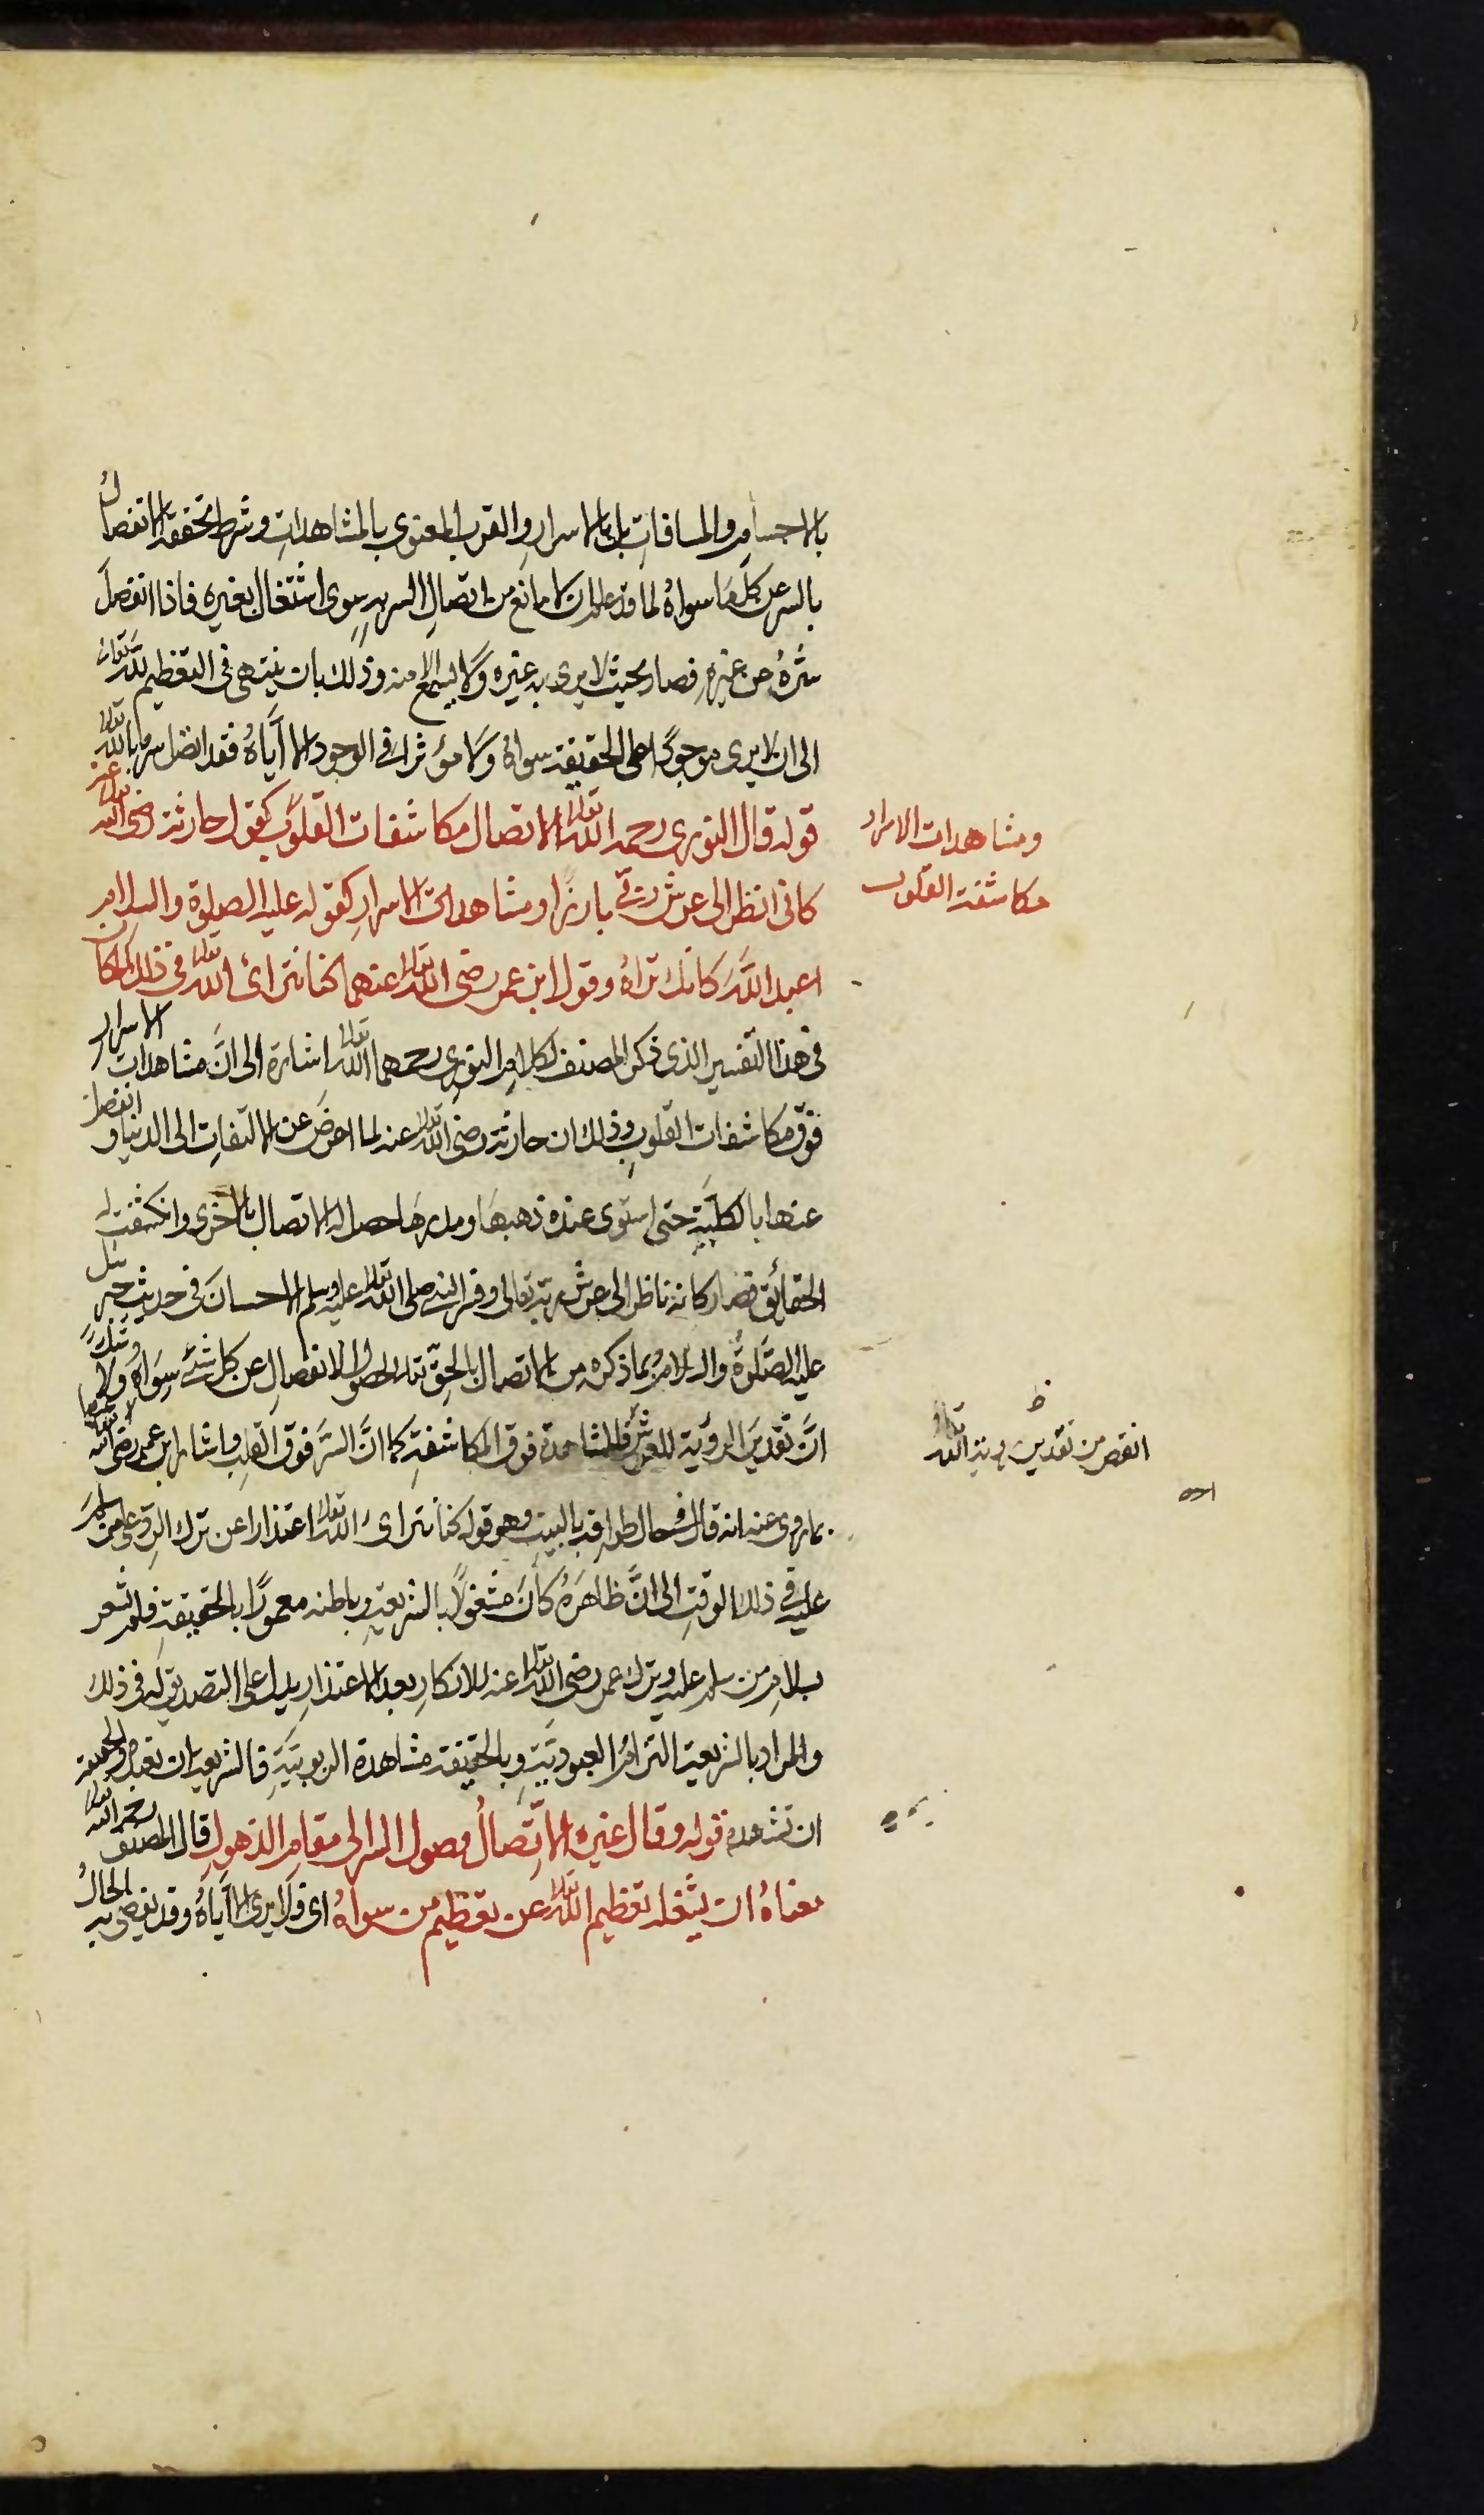 بالاجسام والمسافات بل بالاسرار والقرب المعنوى بالمشاهدات وشرط تحققه الانفصال
بالسر عن كل ما سواه لما قد علم ان لا مانع من اتصال السر به سوى اشتغال بغيره فاذا انفصل
سره عن غيره فصار بحيث لا يرى به غيره ولا يسمع الا منه وذلك بان ينتهى فى التعظيم لله تعالى
الى ان لا يرى موجودا على الحقيقة سواه ولا مؤثرا فى الوجود الا اياه فقد اتصل سره بالله تعالى
قوله قال النورى رحمه الله تعالى الاتصال مكاشفات القلوب كقول حارثة رضى الله تعالى عنه
كانى انظر الى عرش ربى بارزا ومشاهدات الاسرار كقوله عليه الصلوة والسلام
اعبد الله كانك تراه وقول ابن عمر رضى الله تعالى عنهما كنا نتراءى الله تعالى فى ذلك المكان
فى هذا التفسير الذى ذكره المصنف لكلام النورى رحمهما الله تعالى اشارة الى ان مشاهدات الاسرار
فوق مكاشفات القلوب وذلك ان حارثة رضى الله تعالى عنه لما اعرض عن الالتفات الى الدنيا وانفصل
عنها بالكلية حتى استوى عنده ذهبها ومدرها حصل له الاتصال بالاخرى وانكشفت له
الحقائق فصار كانه ناظر الى عرش ربه تعالى وفسر النبى صلى الله تعالى عليه وسلم الاحسان فى حديث جبرئيل
عليه الصلوة والسلام بما ذكره من الاتصال بالحق تعالى لحصول الانفصال عن كل شئ سواه ولا شك
ان تقديس الرؤية للعرش فالمشاهدة فوق المكاشفة كما ان السر فوق القلب واشار ابن عمر رضى الله تعالى عنهما
بما روى عنه انه قال فى حال طوافه بالبيت وهو قوله كنا نتراءى الله تعالى اعتذارا عن ترك الرد على من سلم
عليه فى ذلك الوقت الى ان ظاهره كان مشغولا بالشريعة وباطنه معمورا بالحقيقة فلم يشعر
بسلام من سلم عليه وترك عمر رضى الله تعالى عنه للانكار بعد الاعتذار يدل على التصديق له فى ذلك
والمراد بالشريعة التزام العبودية وبالحقيقة مشاهدة الربوبية فالشريعة ان تعبده والحقيقة
ان تشهده قوله وقال غيره الاتصال وصول السر الى مقام الذهول قال المصنف رحمه الله تعالى
معناه ان يشغله تعظيم الله تعالى عن تعظيم من سواه اى فلا يرى الا اياه وقد يفضى به الحال
ومشاهدات الاسرار
مكاشفة القلوب
ظ
انقص من تقديس رؤية الله تعالى